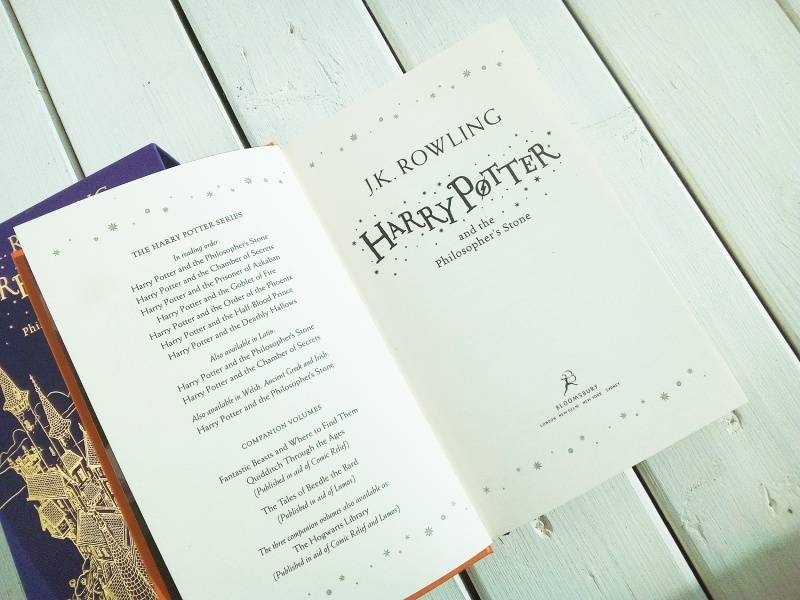 THE HARRY POTTER SERIES
In reading order:
Harry Potter and the Philosopher's Stone
Harry Potter and the Chamber of Secrets
Harry Potter and the Prisoner of Azkaban
Harry Potter and the Goblet of Fire
Harry Potter and the Order of the Phoenix
Harry Potter and the Half-Blood Prince
Harry Potter and the Deathly Hallows
Also available in Latin:
Harry Potter and the Philosopher's Stone
Harry Potter and the Chamber of Secrets
Also available in Welsh, Ancient Greek and Irish:
Harry Potter and the Philosopher's Stone
COMPANION VOLUMES
Fantastic Beasts and Where to Find Them
Quidditch Through the Ages
(Published in aid of Comic Relief)
The Tales of Beedle the Bard
(Published in aid of Lumos)
The three companion volumes also available as:
The Hogwarts Library
(Published in aid of Comic Relief and Lumos)
J.K. ROWLING
HARRY POTTER
and the
Philosopher's Stone
BLOOMSBURY
LONDON NEW DELHI NEW YORK SYDNEY